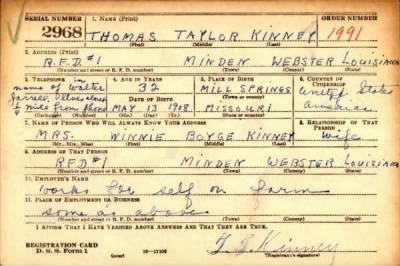 SERIAL NUMBER 1. NAME (Print) ORDER NUMBER
2968 THOMAS TAYLOR KINNEY 1991
(First) (Middle) (Last)
2. ADDRESS (Print)
R.F.D #1 MINDEN WEBSTER LOUISIANA
(Number and street or R. F. D. number) (Town) (County) (State)
3. TELEPHONE 4. AGE IN YEARS 5. PLACE OF BIRTH 6. COUNTRY OF CITIZENSHIP
name of Walter 32 MILL SPRINGS United States
DATE OF BIRTH (Town or county)
MAY 13 1908 MISSOURI America
(Mo.) (Day) (Yr.) (State or country)
7. NAME OF PERSON WHO WILL ALWAYS KNOW YOUR ADDRESS 8. RELATIONSHIP OF THAT PERSON
MRS. WINNIE BOYCE KINNEY wife
(Mr., Mrs., Miss) (First) (Middle) (Last)
9. ADDRESS OF THAT PERSON
RFD #1 MINDEN WEBSTER LOUISIANA
(Number and street or R. F. D. number) (Town) (County) (State)
10. EMPLOYER'S NAME
works for self on farm
11. PLACE OF EMPLOYMENT OR BUSINESS
same as above
(Number and street or R. F. D. number) (Town) (County) (State)
I AFFIRM THAT I HAVE VERIFIED ABOVE ANSWERS AND THAT THEY ARE TRUE.
REGISTRATION CARD T. T. Kinney
D. S. S. Form 1 (over) (Registrant's signature)